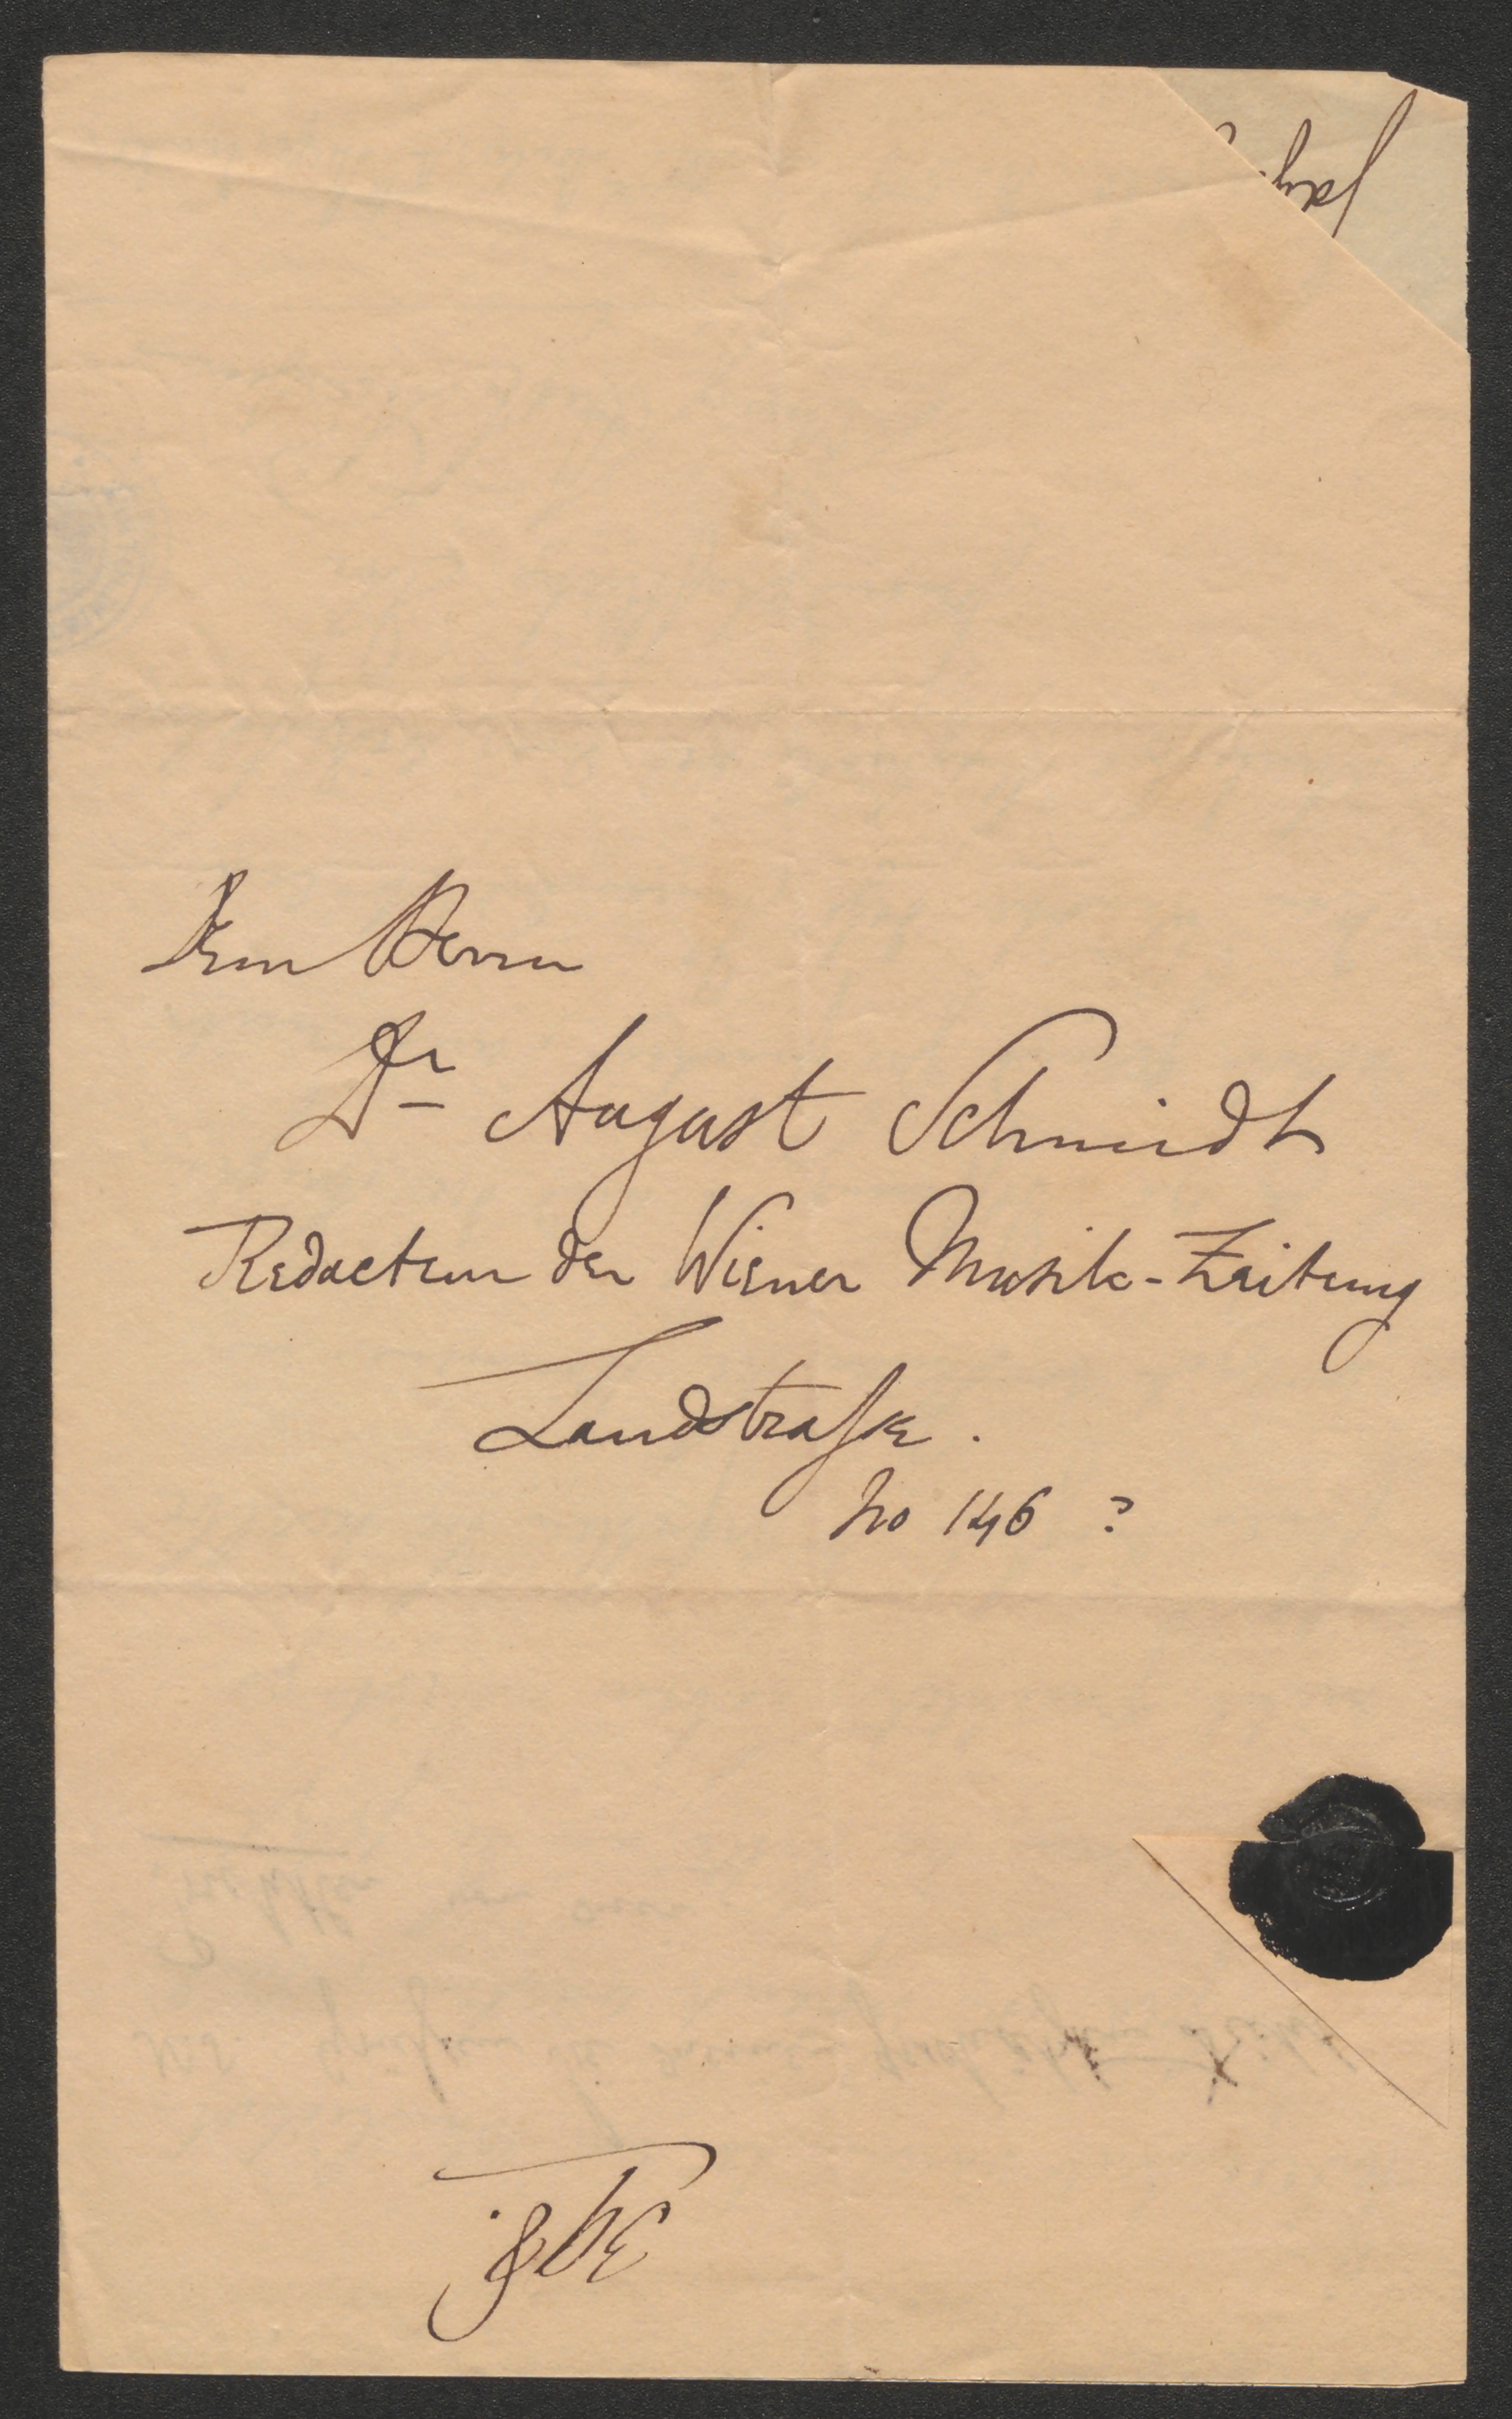 Dem Herrn
Dr August Schmidt
Redacteur der Wiener Musik-Zeitung
Landstraße.
No 146 ?